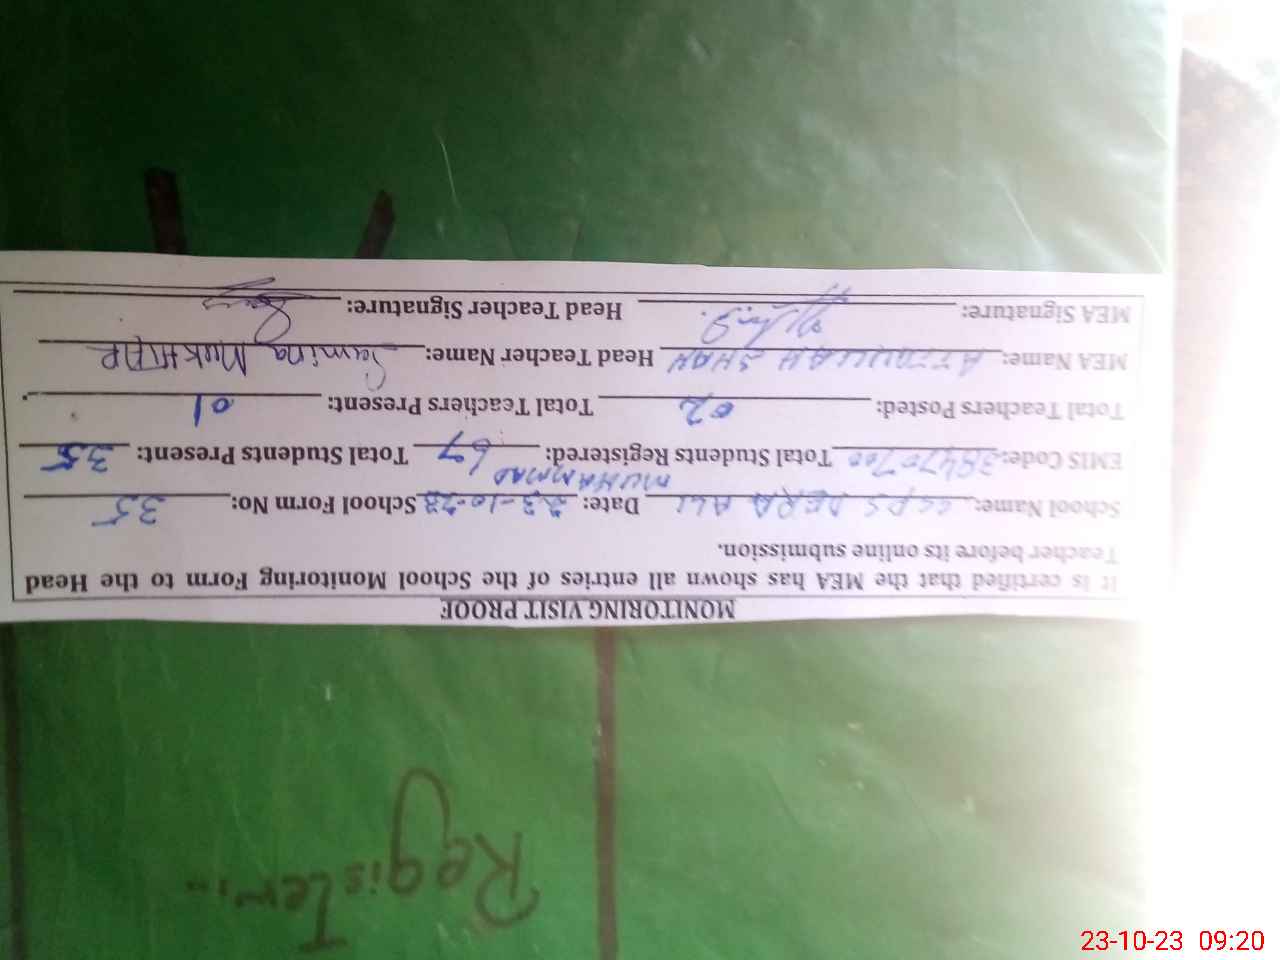 MONITORING VISIT PROOF
It is certified that the MEA has shown all entries of the School Monitoring Form to the Head
Teacher before its online submission.
School Name: GGPS DERA ALI MUHAMMAD Date: 23-10-23 School Form No: 35
EMIS Code: 38470700 Total Students Registered: 67 Total Students Present: 35
Total Teachers Posted: 02 Total Teachers Present: 01
MEA Name: ATTAULLAH SHAH Head Teacher Name: Samina MUKHTAR
MEA Signature: Head Teacher Signature:
Register
23-10-23 09:20